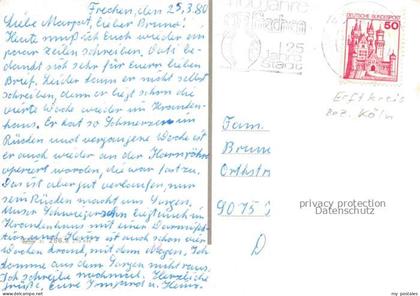 Frechen, den 25.3.80
Liebe Margot, lieber Bruno!
Heute muß ich Euch wieder ein
paar Zeilen schreiben. Vati be-
dankt sich sehr für Euren lieben
Brief. Leider kann er nicht selbst
schreiben, denn er liegt schon die
vierte Woche wieder im Kranken-
haus. Er hat so Schmerzen im
Rücken und vergangene Woche ist
er auch wieder an der Harnröhre
operiert worden, die war fast zu.
Das ist aber gut verlaufen, nur
sein Rücken macht uns Sorgen.
Unser Schwiegersohn liegt auch im
Krankenhaus mit einer Darminfek-
tion und Heinz ist auch schon vier
Wochen krank, mit dem Magen. Ich
komme aus dem Sorgen nicht raus.
Ich schreibe nochmal. Herzliche
Grüße, Eure Irmgard u. Heinz.
Jahre
25
Jahre
Stadt
DEUTSCHE BUNDESPOST
50
Erftkreis
Bez. Köln
Fam.
Brun
Orthstr
9075
D
privacy protection
Datenschutz
www.ansichtskartenversand.com
my-postales